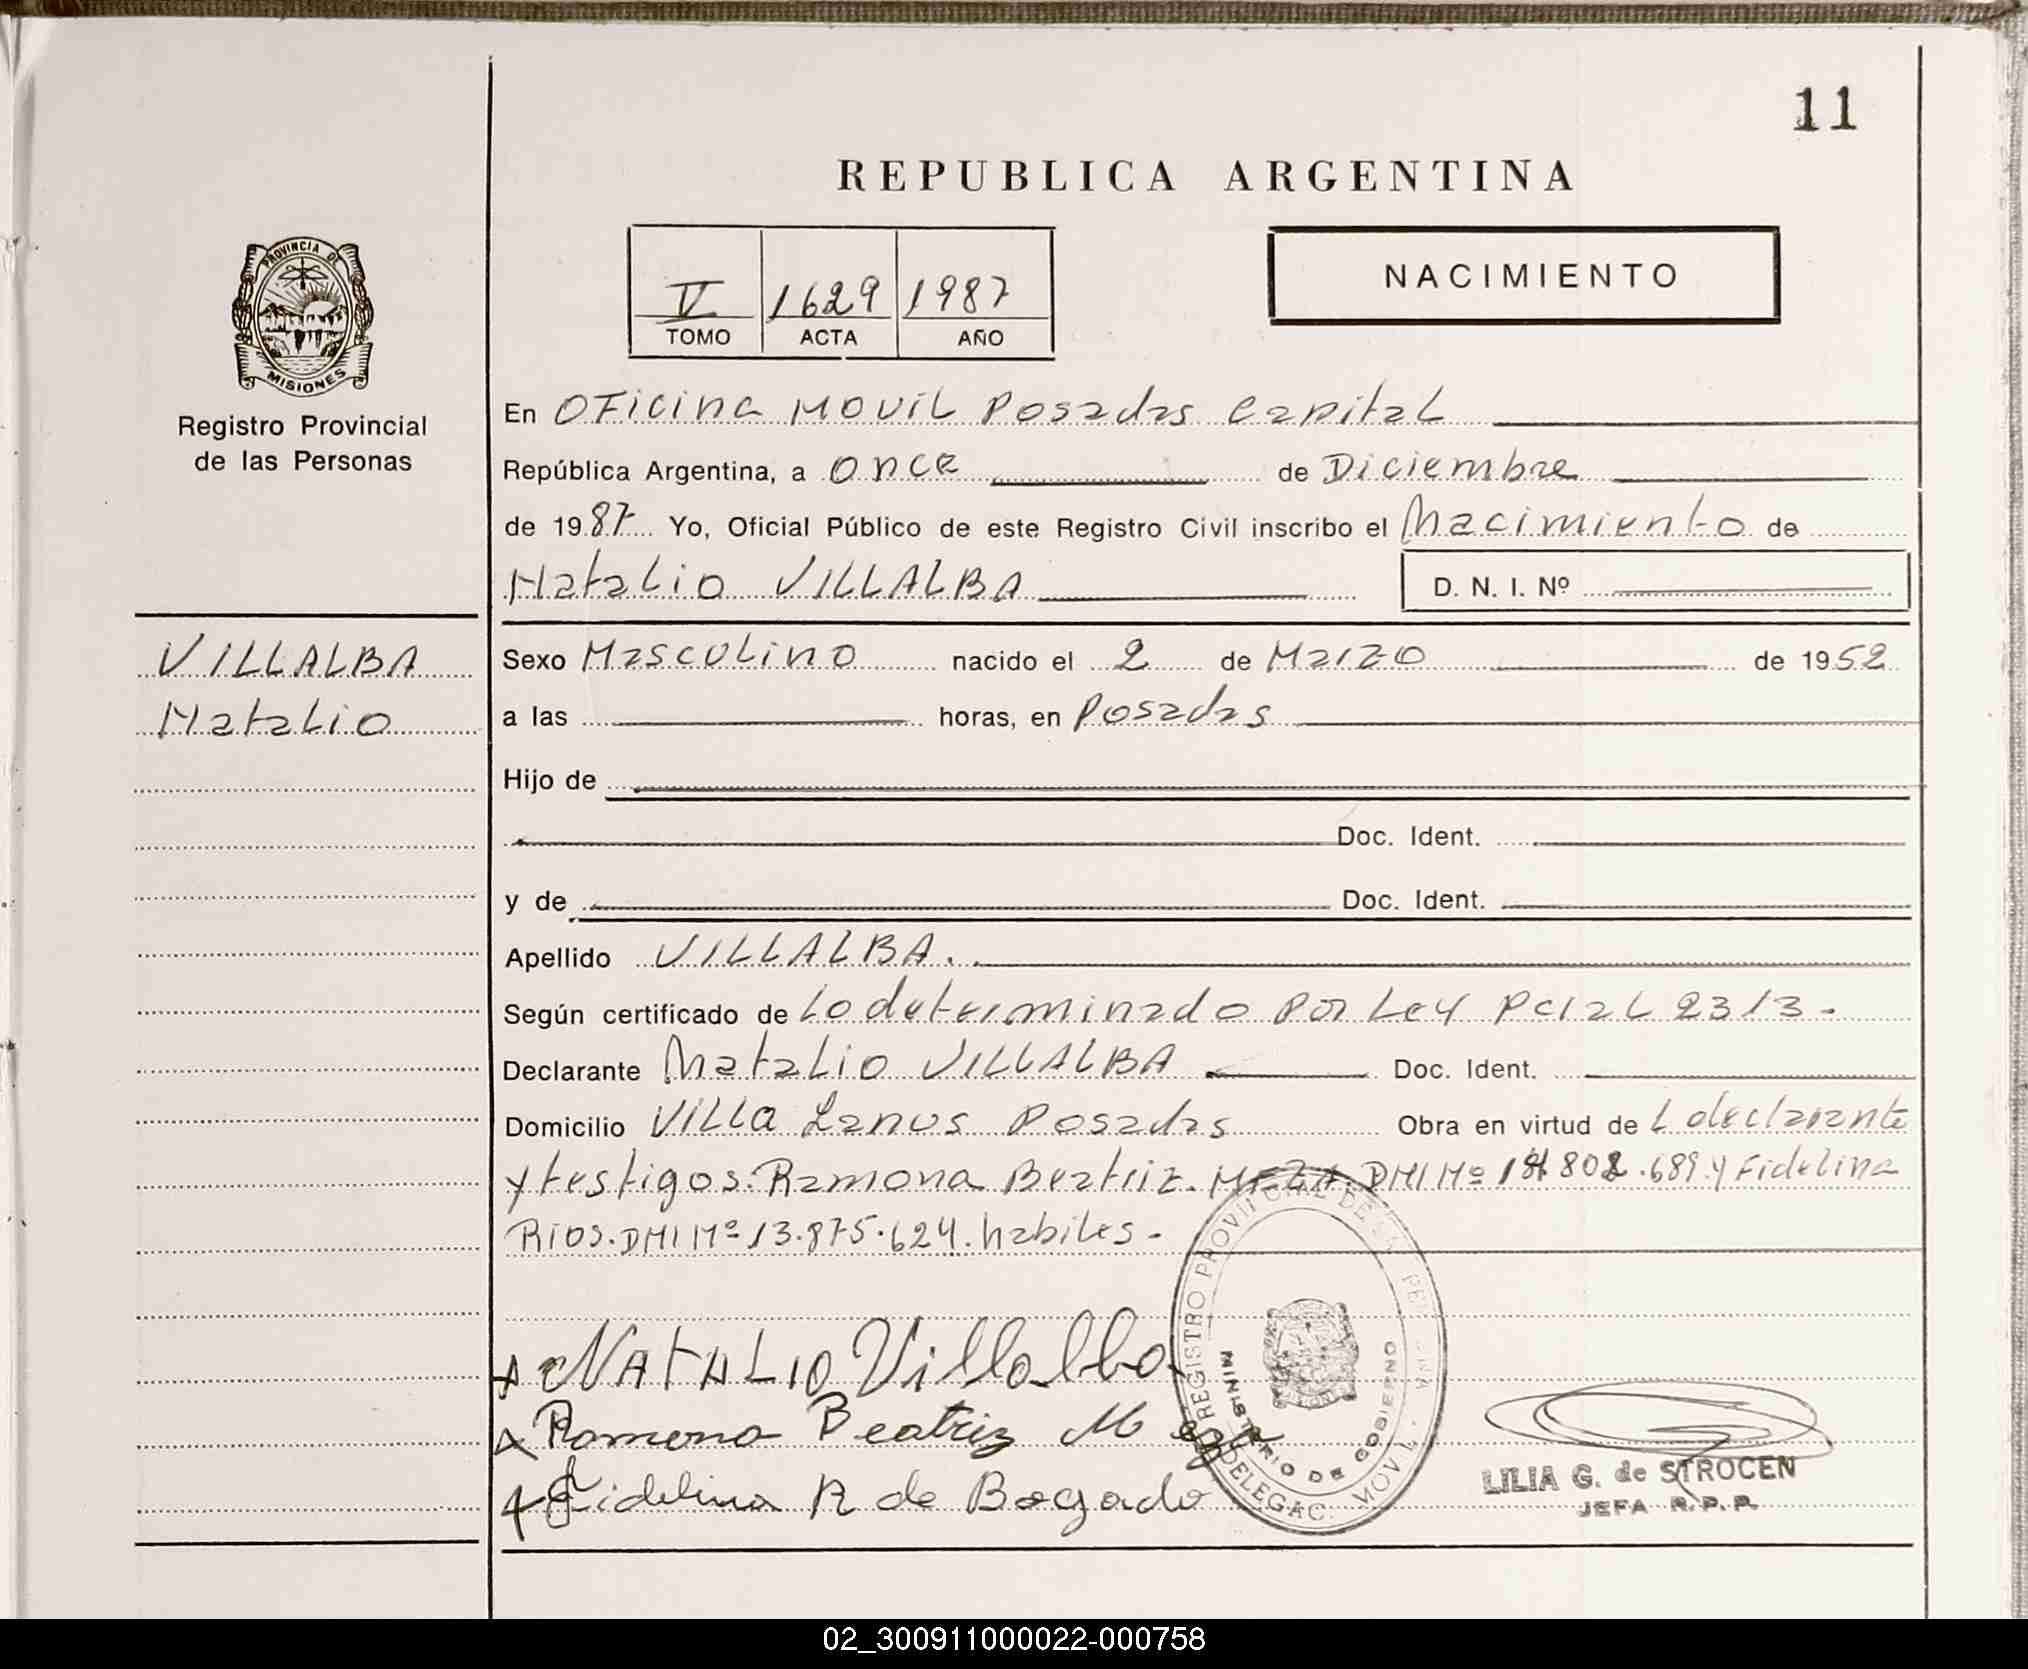 11
REPUBLICA ARGENTINA
V 1629 1987
TOMO ACTA AÑO
NACIMIENTO
PROVINCIA DE
MISIONES
Registro Provincial
de las Personas
En Oficina Movil Posadas Capital
República Argentina, a once de Diciembre
de 1987 Yo, Oficial Público de este Registro Civil inscribo el Nacimiento de
Natalio VILLALBA D. N. I. Nº
VILLALBA
Natalio
Sexo Masculino nacido el 2 de Marzo de 1952
a las horas, en Posadas
Hijo de
Doc. Ident.
y de Doc. Ident.
Apellido VILLALBA.
Según certificado de lo determinado por Ley Pcial 2313.
Declarante Natalio VILLALBA Doc. Ident.
Domicilio Villa Lanus Posadas Obra en virtud de L declarante
y testigos: Ramona Beatriz MEZA. DNI Nº .689 y Fidelina
RIOS. DNI Nº 13.875.624. habiles.
NATALIO Villalba
Ramona Beatriz Meza
Fidelina R de Bogado
REGISTRO PROVINCIAL DE LAS PERSONAS
MINISTERIO DE GOBIERNO
DELEGAC. MOVIL
LILIA G. de STROCEN
JEFA R.P.P.
02_300911000022-000758